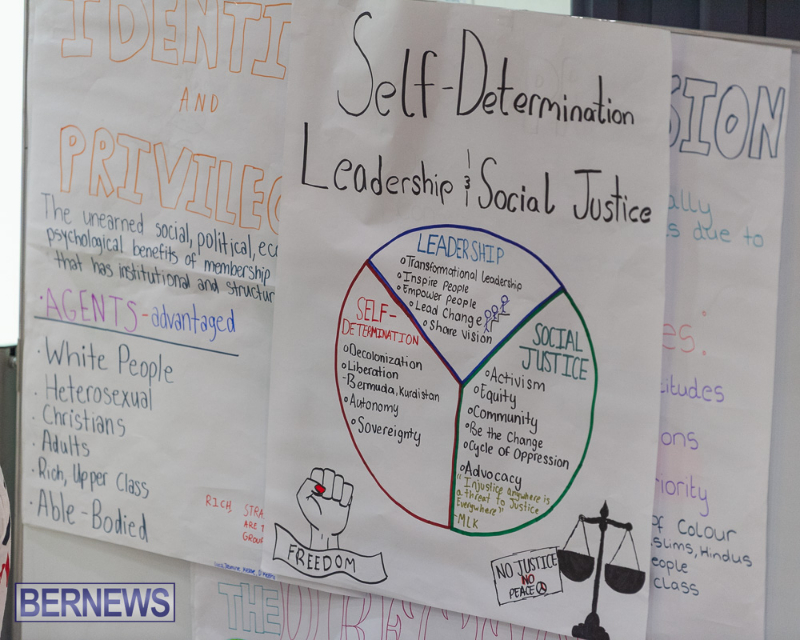 IDENTI
AND
PRIVILEG
The unearned social, political, eco
psychological benefits of membership
that has institutional and structur
·AGENTS-advantaged
·White People
·Heterosexual
·Christians
·Adults
·Rich, Upper Class
·Able-Bodied
RICH, STRA
ARE T
GROU
Self-Determination
Leadership & Social Justice
LEADERSHIP
Transformational Leadership
Inspire People
Empower people
Lead Change
Share Vision
SELF-
DETERMINATION
Decolonization
Liberation
-Bermuda, Kurdistan
Autonomy
Sovereignty
SOCIAL
JUSTICE
Activism
Equity
Community
Be the Change
Cycle of Oppression
Advocacy
"Injustice anywhere is
a threat to Justice
Everywhere"
-MLK
FREEDOM
NO JUSTICE
NO
PEACE
SION
ally
s due to
es:
titudes
ons
iority
of Colour
slims, Hindus
eople
class
THE
BERNEWS